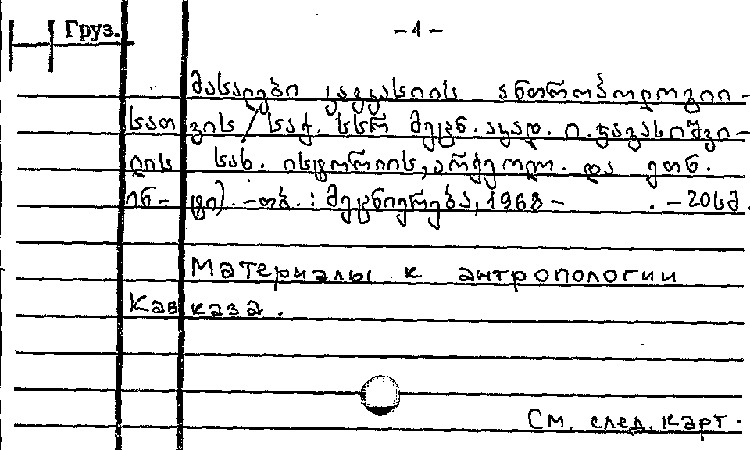 Груз.
-1-
მასალები კავკასიის ანთროპოლოგიი-
სათვის /საქ. სსრ მეცნ. აკად. ი. ჯავახიშვი-
ლის სახ. ისტორიის, არქეოლ. და ეთნ.
ინ-ტი). -თბ. : მეცნიერება, 1968- . -20სმ.
Материалы к антропологии
Кавказа.
См. след. карт.